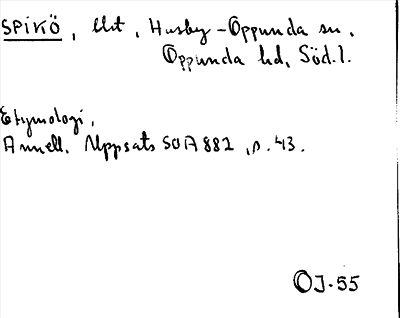 SPIKÖ, Utt, Husby-Oppunda sn.
Oppunda hd, Söd.l.
Etymologi.
Annell. Uppsats SOA 882, s. 43.
OJ-55